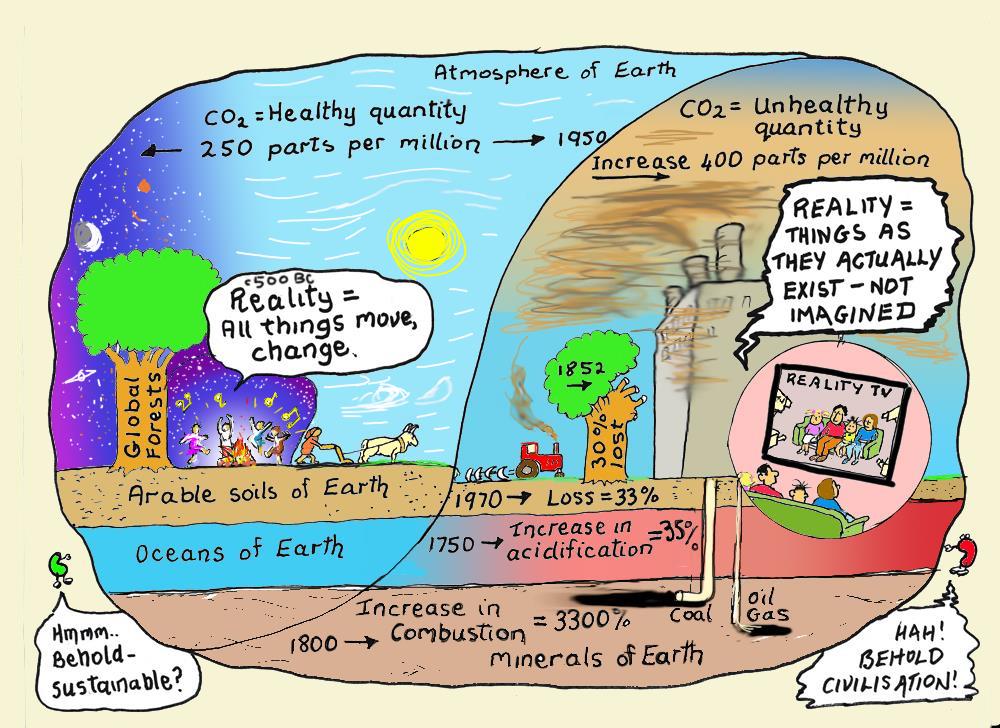 Atmosphere of Earth
CO₂ = Healthy quantity
← 250 parts per million → 1950
CO₂ = Unhealthy
quantity
Increase 400 parts per million
→
REALITY =
THINGS AS
THEY ACTUALLY
EXIST - NOT
IMAGINED
c500 BC
Reality =
All things move,
change.
Global
Forests
1852
→
30%
lost
REALITY TV
Arable soils of Earth
1970 → Loss = 33%
Oceans of Earth
1750 → Increase in
acidification = 35%
Increase in
1800 → Combustion = 3300%
Coal
Oil
Gas
Minerals of Earth
Hmmm..
Behold-
sustainable?
HAH!
BEHOLD
CIVILISATION!